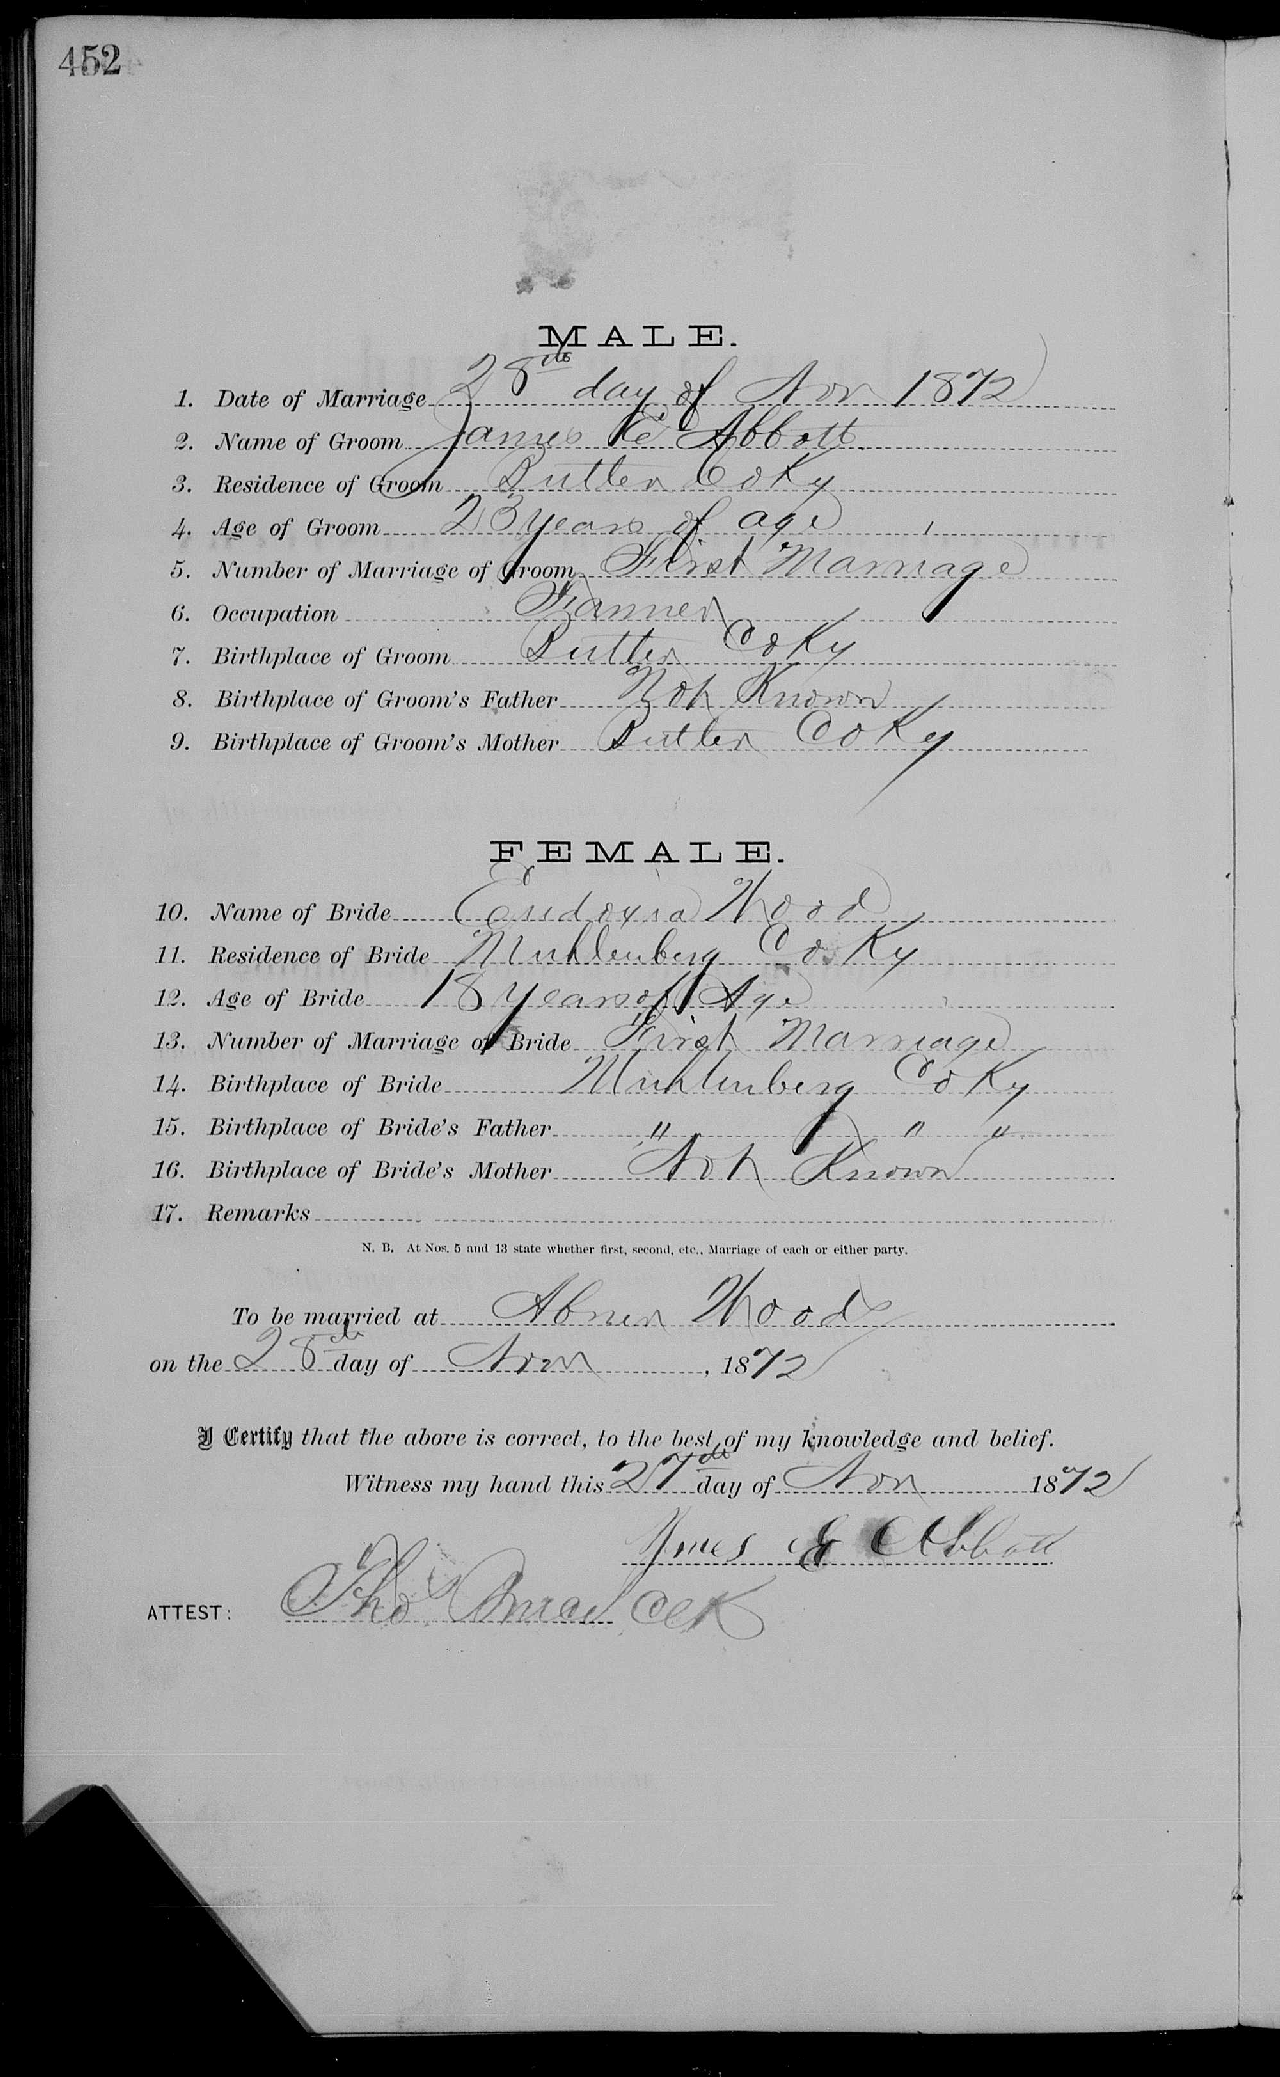 452
MALE.
1. Date of Marriage 28th day of Nov 1872
2. Name of Groom James E Abbott
3. Residence of Groom Butler Co Ky
4. Age of Groom 23 years of age
5. Number of Marriage of Groom First Marriage
6. Occupation Farmer
7. Birthplace of Groom Butler Co Ky
8. Birthplace of Groom's Father Not Known
9. Birthplace of Groom's Mother Butler Co Ky
FEMALE.
10. Name of Bride Eudoxia Wood
11. Residence of Bride Muhlenberg Co Ky
12. Age of Bride 18 years of Age
13. Number of Marriage of Bride First Marriage
14. Birthplace of Bride Muhlenberg Co Ky
15. Birthplace of Bride's Father " " "
16. Birthplace of Bride's Mother Not Known
17. Remarks
N. B. At Nos. 5 and 13 state whether first, second, etc., Marriage of each or either party.
To be married at Abner Woods
on the 28th day of Nov, 1872
I Certify that the above is correct, to the best of my knowledge and belief.
Witness my hand this 27th day of Nov 1872
E Abbott
ATTEST: Thos Clk